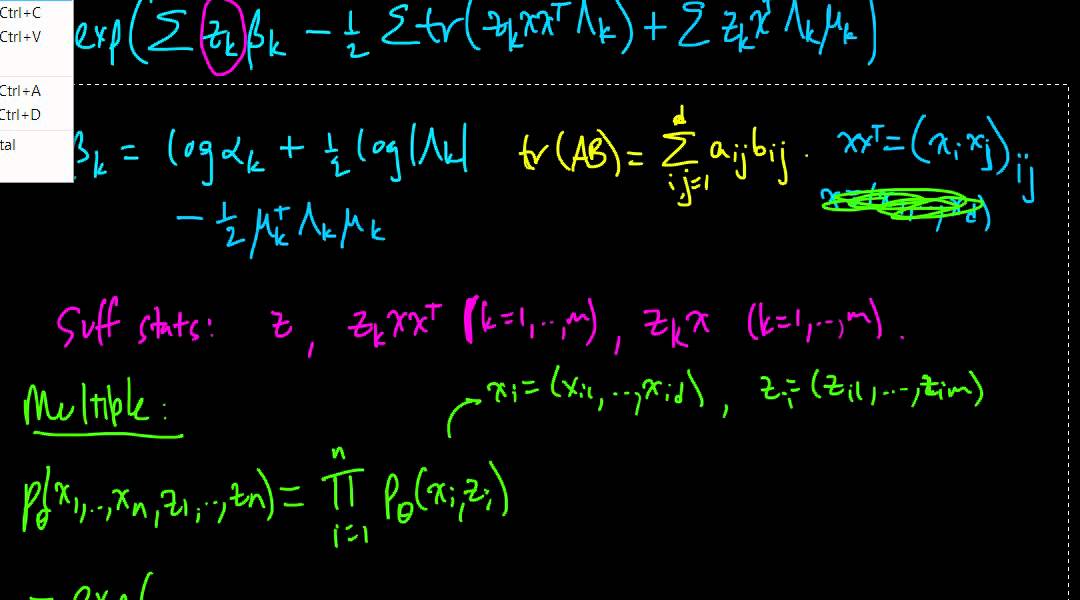 Ctrl+C
Ctrl+V
Ctrl+A
Ctrl+D
tal
exp(∑ z_k β_k − ½ ∑ tr(z_k xxᵀ Λ_k) + ∑ z_k xᵀ Λ_k μ_k)
β_k = log α_k + ½ log |Λ_k|
− ½ μ_kᵀ Λ_k μ_k
tr(AB) = ∑_{i,j=1}^{d} a_ij b_ij .
xxᵀ = (x_i x_j)_ij
Suff stats: z , z_k xxᵀ (k=1,..,m) , z_k x (k=1,..,m) .
Multiple:
x_i = (x_i1, ..., x_id) , z_i = (z_i1, ..., z_im)
p_θ(x_1, .., x_n, z_1, .., z_n) = ∏_{i=1}^{n} p_θ(x_i, z_i)
= exp(